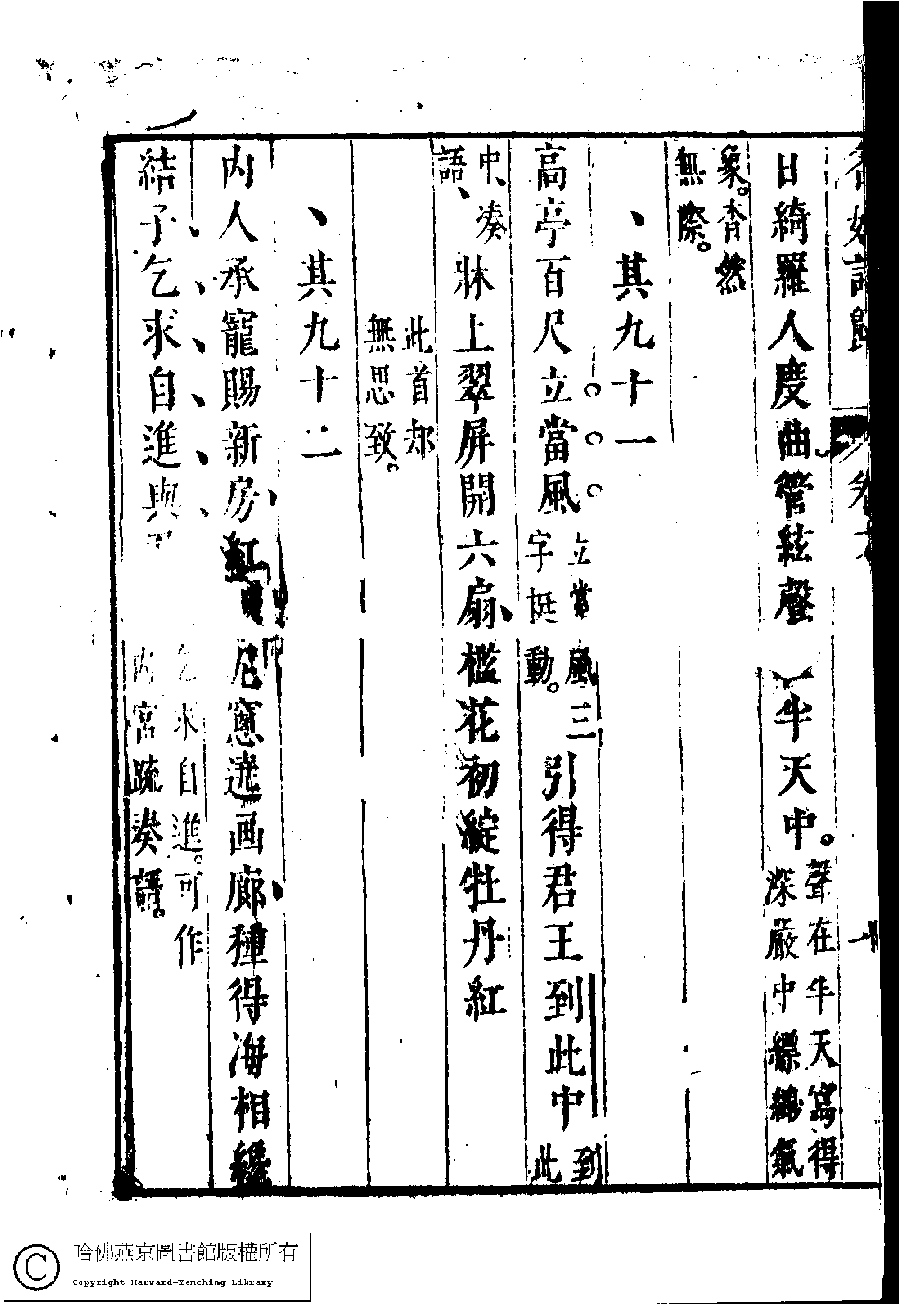 名媛詩歸 卷六 十
日綺羅人度曲管絃聲 半天中。聲在半天寫得深嚴中縹緲氣
象。杳然無際。
其九十一
高亭百尺立當風立當風三字挺動。引得君王到此中到此
中、湊語、牀上翠屏開六扇、檻花初綻牡丹紅
此首却無思致。
其九十二
內人承寵賜新房、紅 窻遶画廊、種得海 相
結子乞求自進與 乞求自進。可作內宮疏奏語。
哈佛燕京圖書館版權所有
Copyright Harvard-Yenching Library